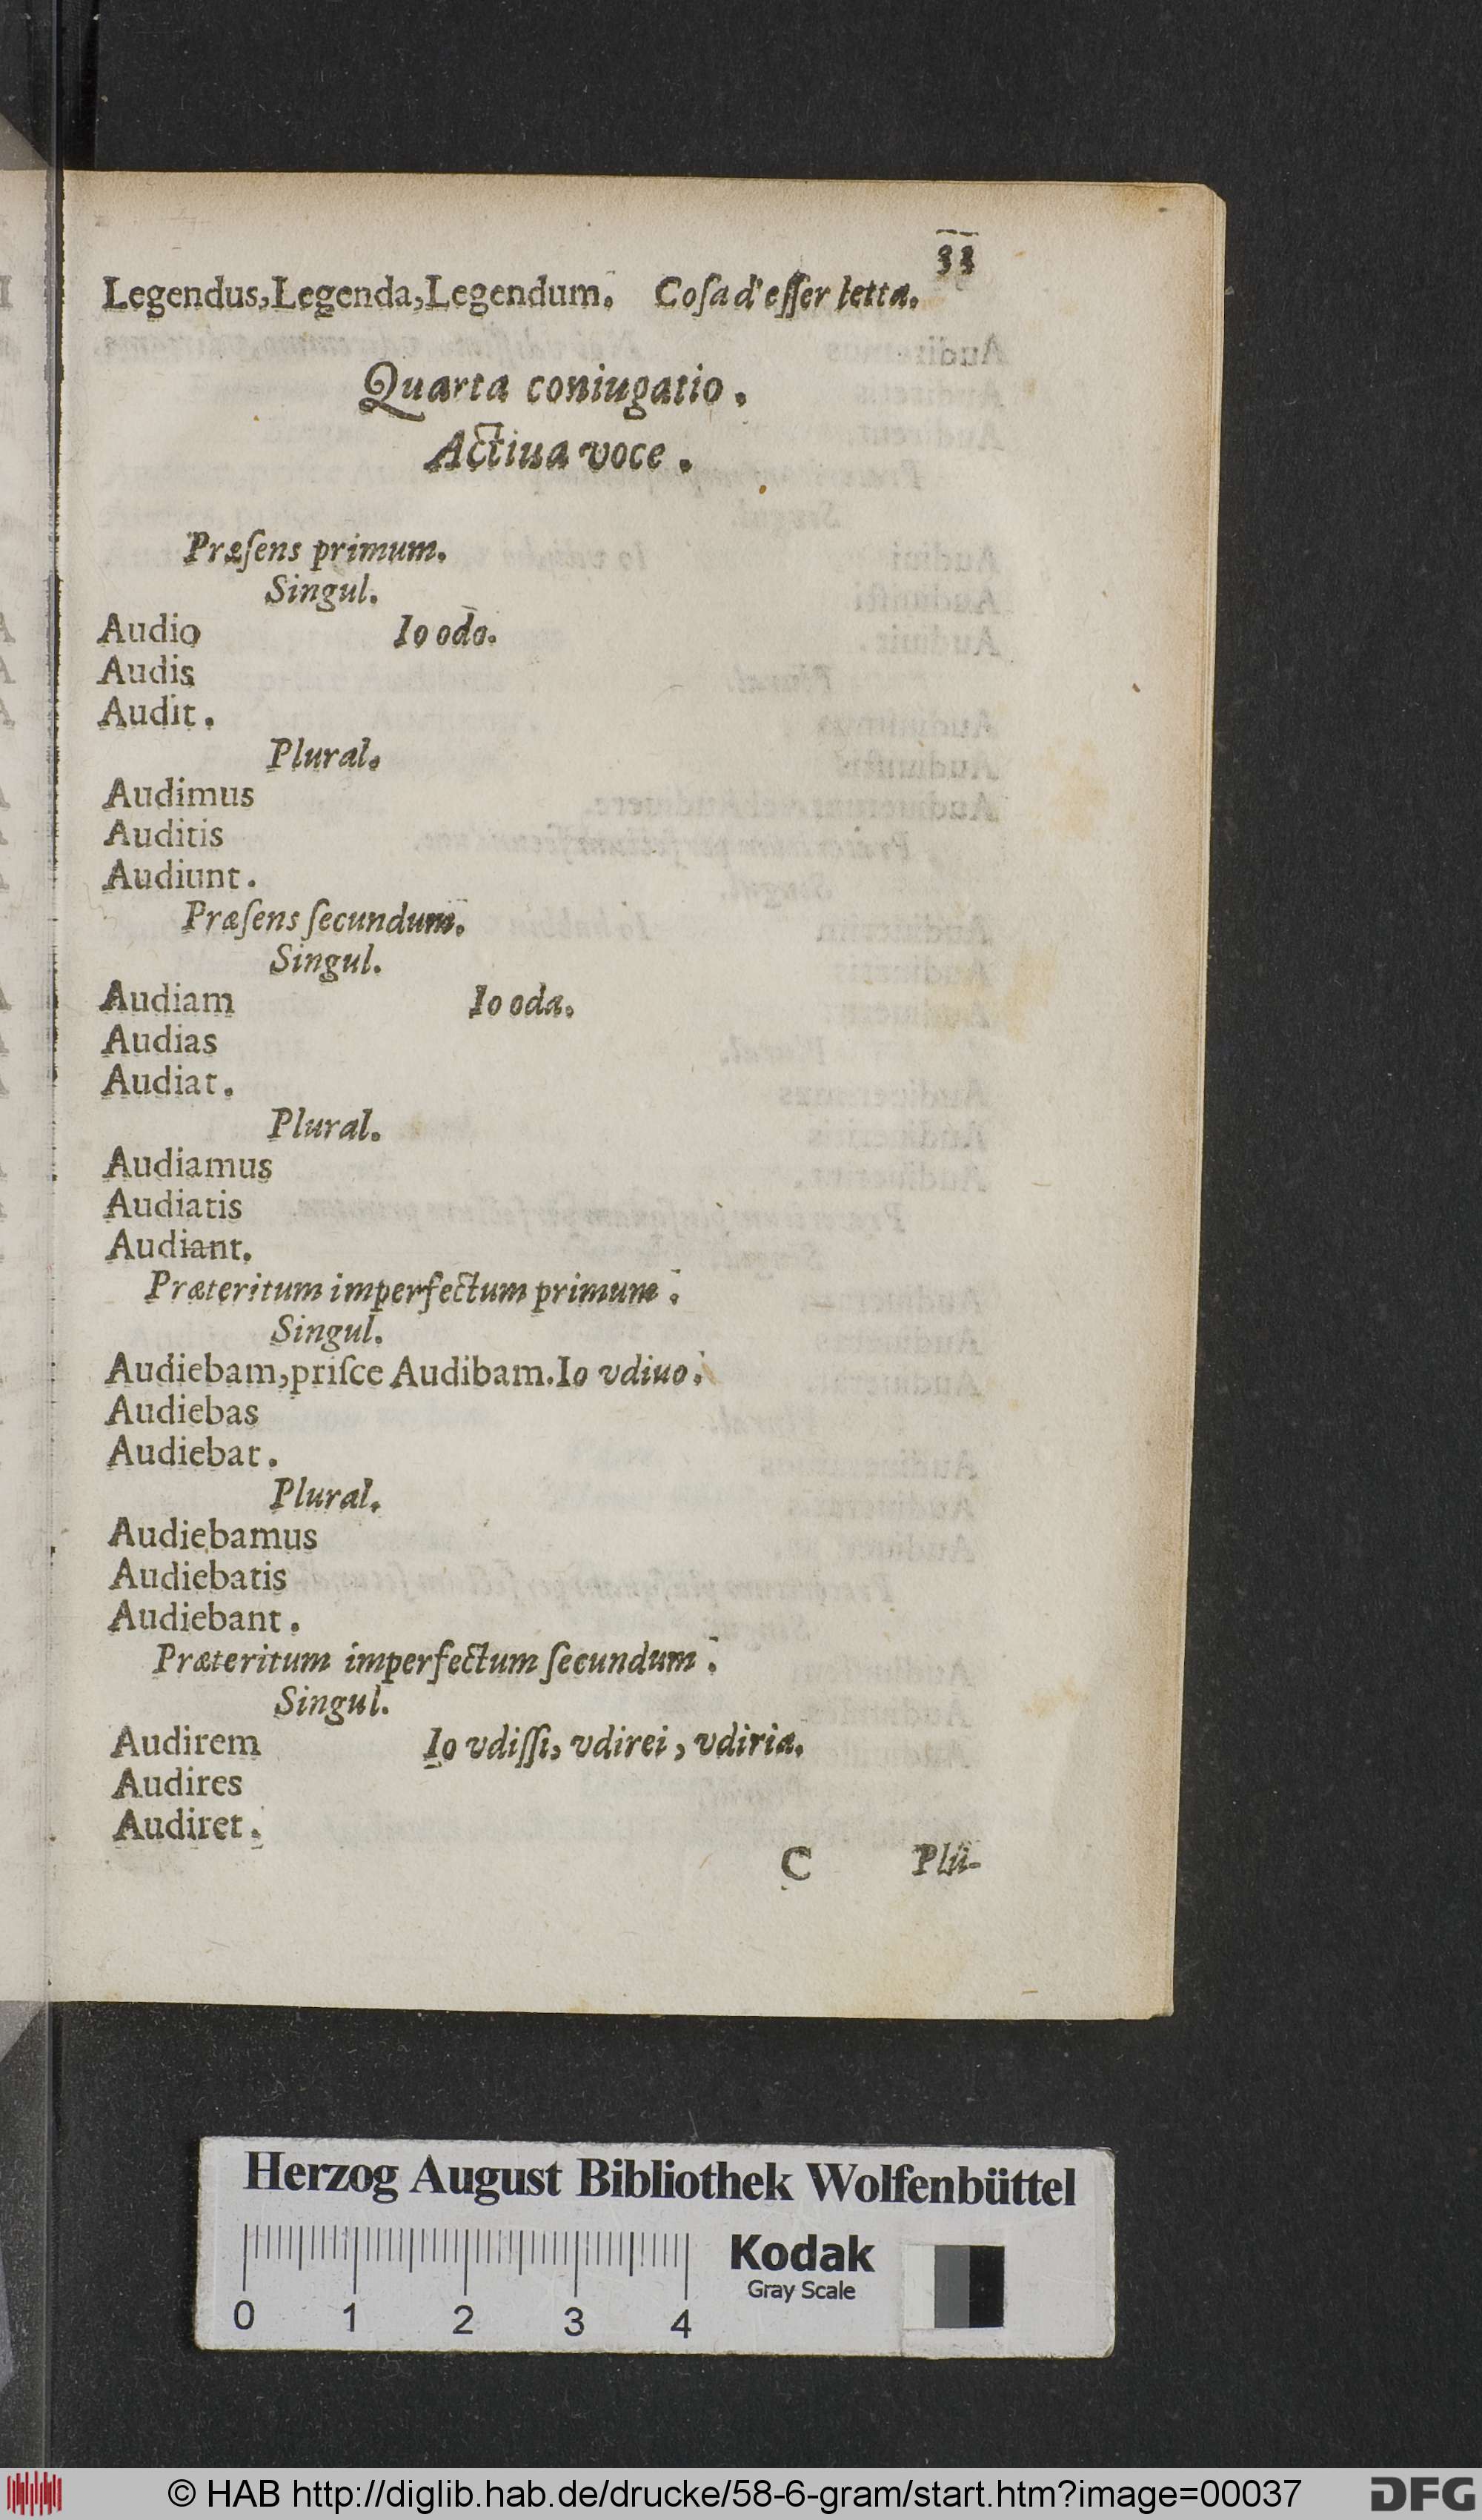 33
Legendus,Legenda,Legendum. Coſa d'eſſer letta.
Quarta coniugatio.
Actiua voce.
Præſens primum.
Singul.
Audio Io odo.
Audis
Audit.
Plural.
Audimus
Auditis
Audiunt.
Præſens ſecundum.
Singul.
Audiam Io oda.
Audias
Audiat.
Plural.
Audiamus
Audiatis
Audiant.
Præteritum imperfectum primum.
Singul.
Audiebam,priſce Audibam.Io vdiuo.
Audiebas
Audiebat.
Plural.
Audiebamus
Audiebatis
Audiebant.
Præteritum imperfectum ſecundum.
Singul.
Audirem Io vdiſſi, vdirei, vdiria.
Audires
Audiret.
C Plu-
Herzog August Bibliothek Wolfenbüttel
Kodak
Gray Scale
0 1 2 3 4
© HAB http://diglib.hab.de/drucke/58-6-gram/start.htm?image=00037
DFG